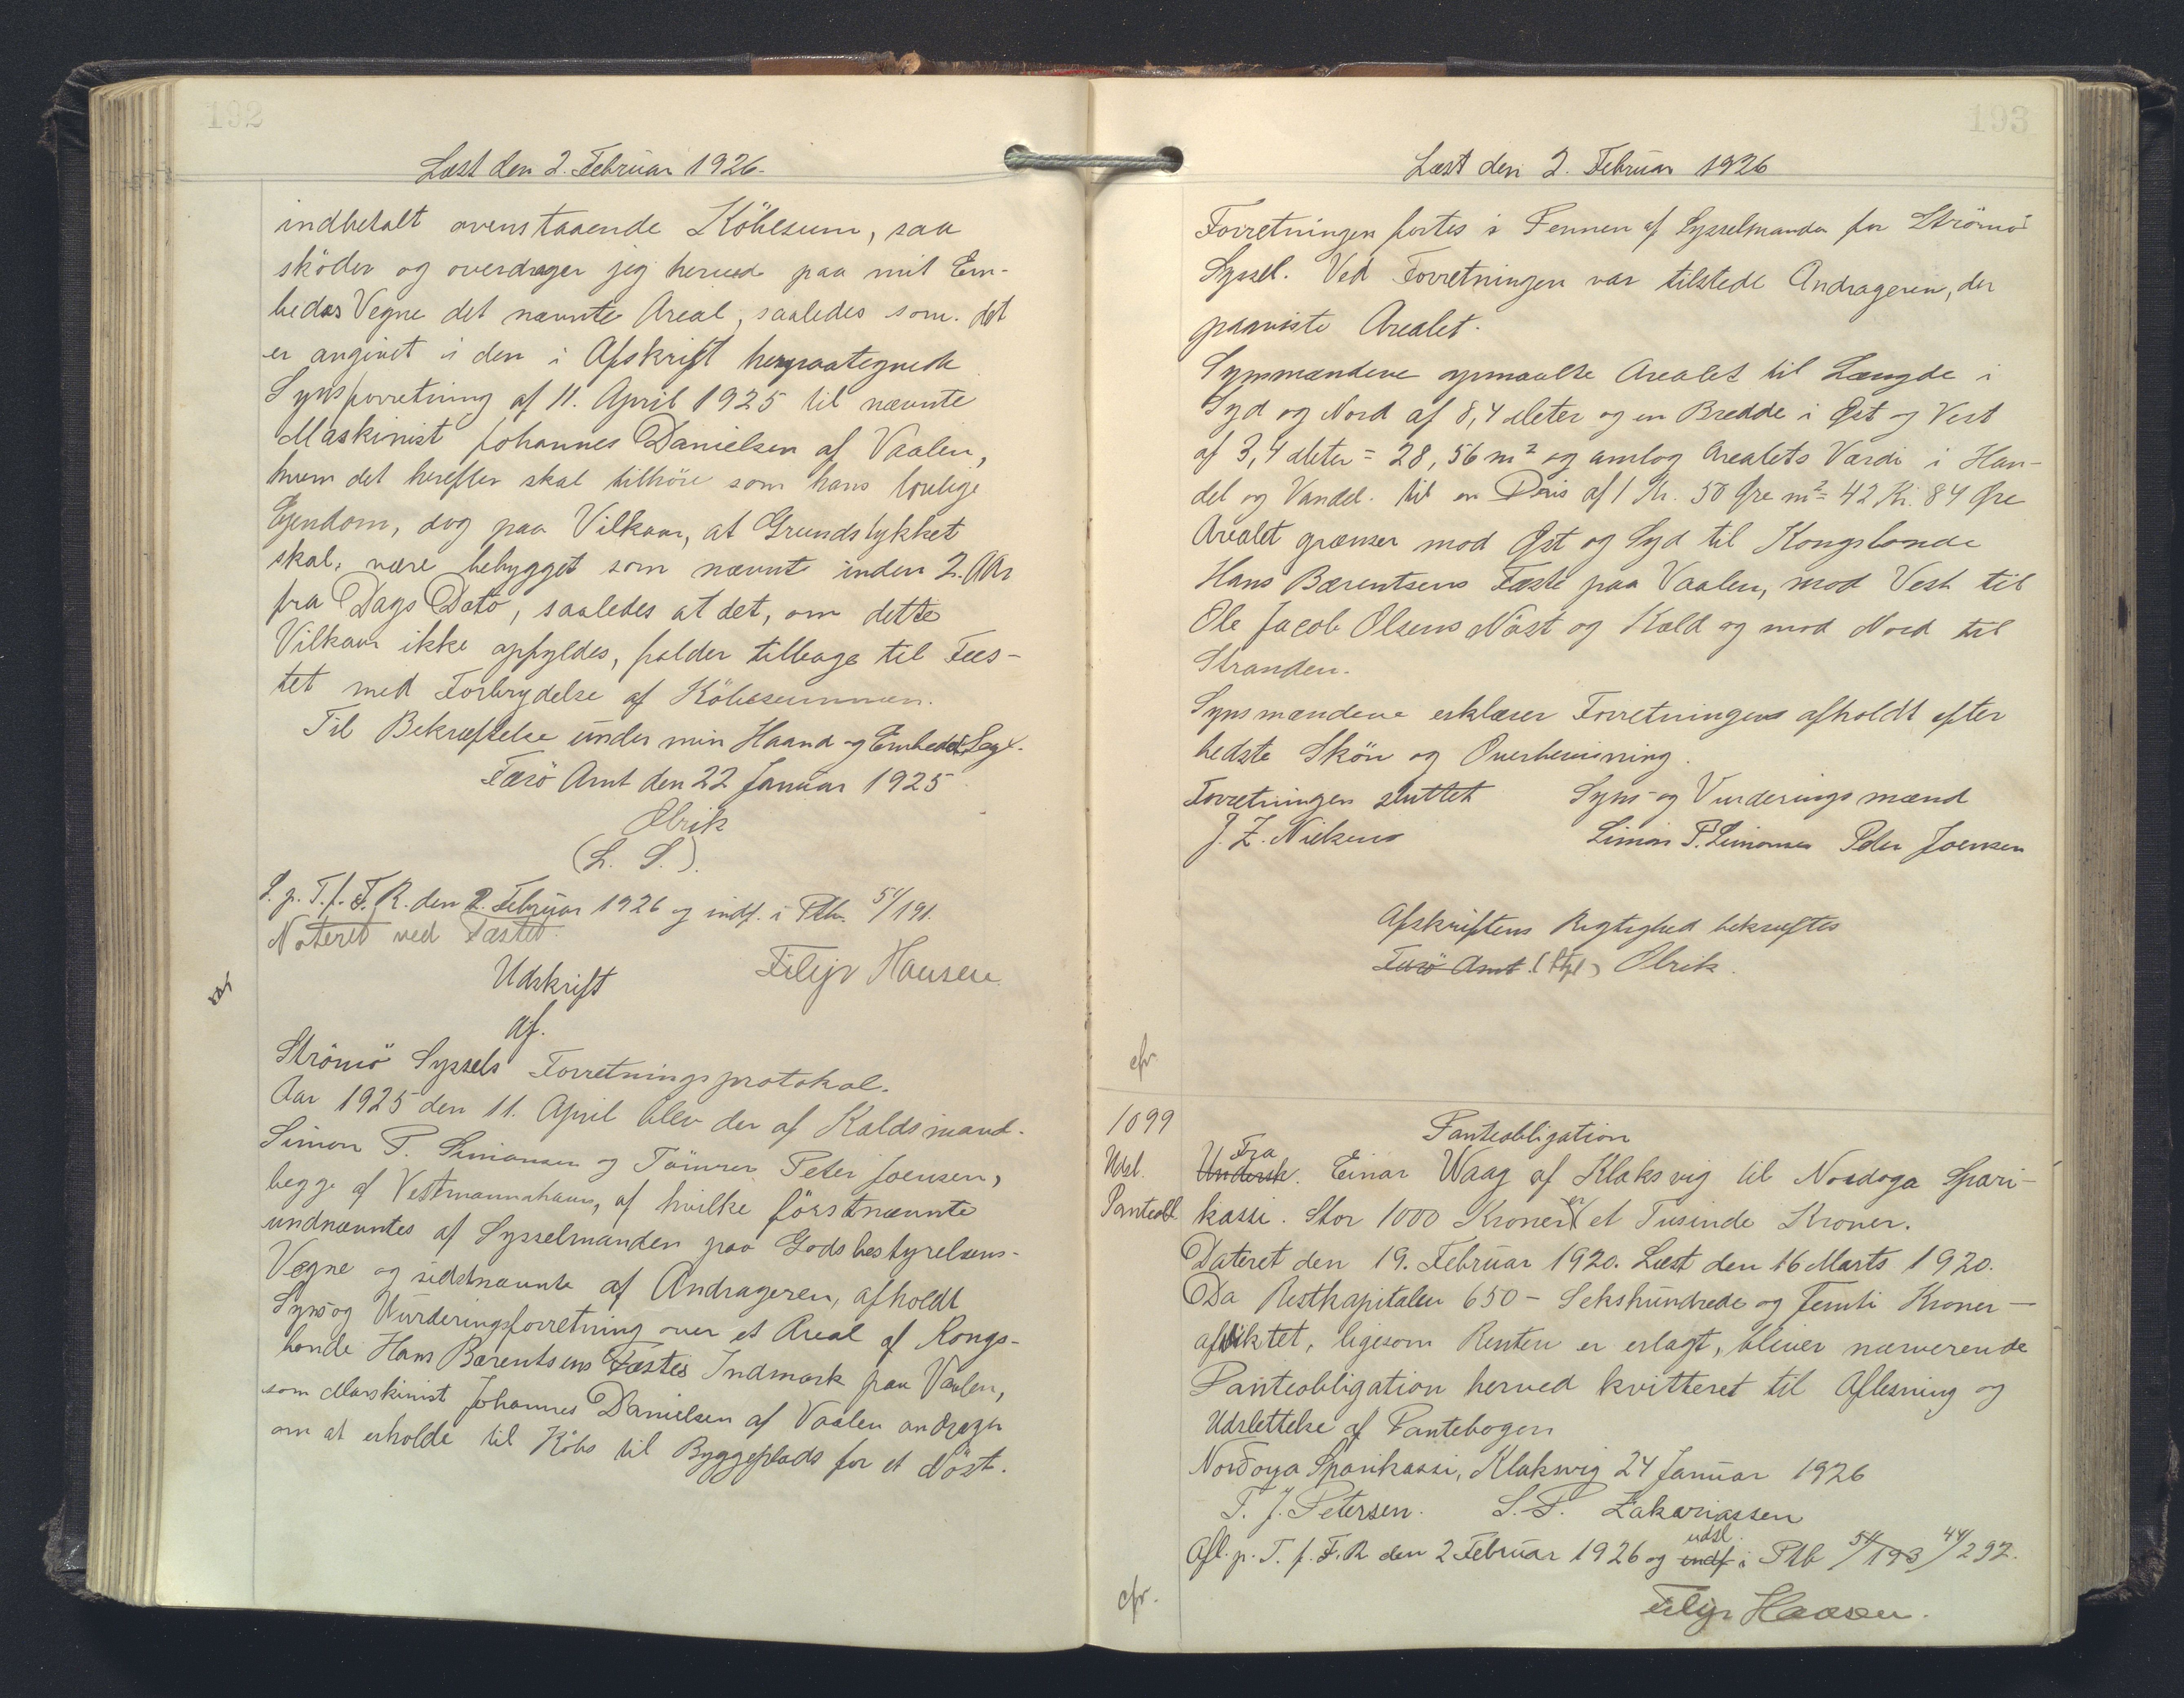 192
Læst den 2. Februar 1926.
indbetalt ovenstaaende Köbesum, saa
sköder og overdrager jeg herved paa mit Em-
bedes Vegne det nævnte Areal, saaledes som det
er angivet i den i Afskrift herpaategnede
Synsforretning af 11. April 1925 til nævnte
Maskinist Johannes Danielsen af Vaalen,
hvem det herefter skal tilhöre som hans lovlige
Ejendom, dog paa Vilkaar, at Grundstykket
skal være bebygget som nævnt inden 2. Aar
fra Dags Dato, saaledes at det, om dette
Vilkaar ikke opfyldes, falder tilbage til Fæs-
tet med Forbrydelse af Köbesummen.
Til Bekræftelse under min Haand og Embedets Segl.
Færö Amt den 22 Januar 1925
Olrik
(L. S.).
L. p. T. f. F. R. den 2. Februar 1926 og indf. i Ptb. 51/191.
Noteret ved Fæstet.
Filip Hansen
Udskrift
af.
Strömö Syssels Forretningsprotokol.
Aar 1925 den 11. April blev der af Kaldsmand
Simon P. Simonsen og Tömrer Peter Joensen,
begge af Vestmannahavn, af hvilke förstnævnte
udnævntes af Sysselmanden paa Godsbestyrelsens
Vegne og sidstnævnte af Andrageren, afholdt
Syns og Vurderingsforretning over et Areal af Kongs-
bonde Hans Bærentsens Fæstes Indmark paa Vaalen,
som Maskinist Johannes Danielsen af Vaalen andrager
om at erholde til Köbs til Byggeplads for et Nöst.
193
Læst den 2. Februar 1926
Forretningen førtes i Pennen af Sysselmanden for Strömö
Syssel. Ved Forretningen var tilstede Andrageren, der
paaviste Arealet.
Synsmændene opmaalte Arealet til Længde i
Syd og Nord af 8,4 Meter og en Bredde i Øst og Vest
af 3,4 Meter = 28,56 m² og antog Arealets Værdi i Han-
del og Vandel til en Pris af 1 Kr. 50 Øre m² = 42 Kr. 84 Øre
Arealet grænser mod Øst og Syd til Kongsbonde
Hans Bærentsens Fæste paa Vaalen, mod Vest til
Ole Jacob Olsens Nöst og Kald og mod Nord til
Stranden.
Synsmændene erklærer Forretningen afholdt efter
bedste Skön og Overbevisning.
Forretningen sluttet Syns- og Vurderingsmænd
J. Z. Nielsen Simon P. Simonsen Peter Joensen
Afskriftens Rigtighed bekræftes
Færö Amt. Olrik.
cfr.
1099
Pantobligation
Udsl.
Pantobl.
Fra
Undersk. Einar Waag af Klaksvig til Nordoya Spari-
kasse. Stor 1000 Kroner er et Tusinde Kroner.
Dateret den 19. Februar 1920. Læst den 16 Marts 1920.
Da Restkapitalen 650 - Sekshundrede og femti Kroner -
afviktet, ligesom Renten er erlagt, bliver nærværende
Panteobligation herved kvitteret til Aflæsning og
Udslettelse af Pantebogen
Nordoya Sparikassi, Klaksvig 24 Januar 1926
T. J. Petersen. S. P. Zakariassen
Afl. p. T. f. F. R den 2 Februar 1926 og indf udsl. i Ptb 51/193 44/292.
cfr.
Filip Hansen.